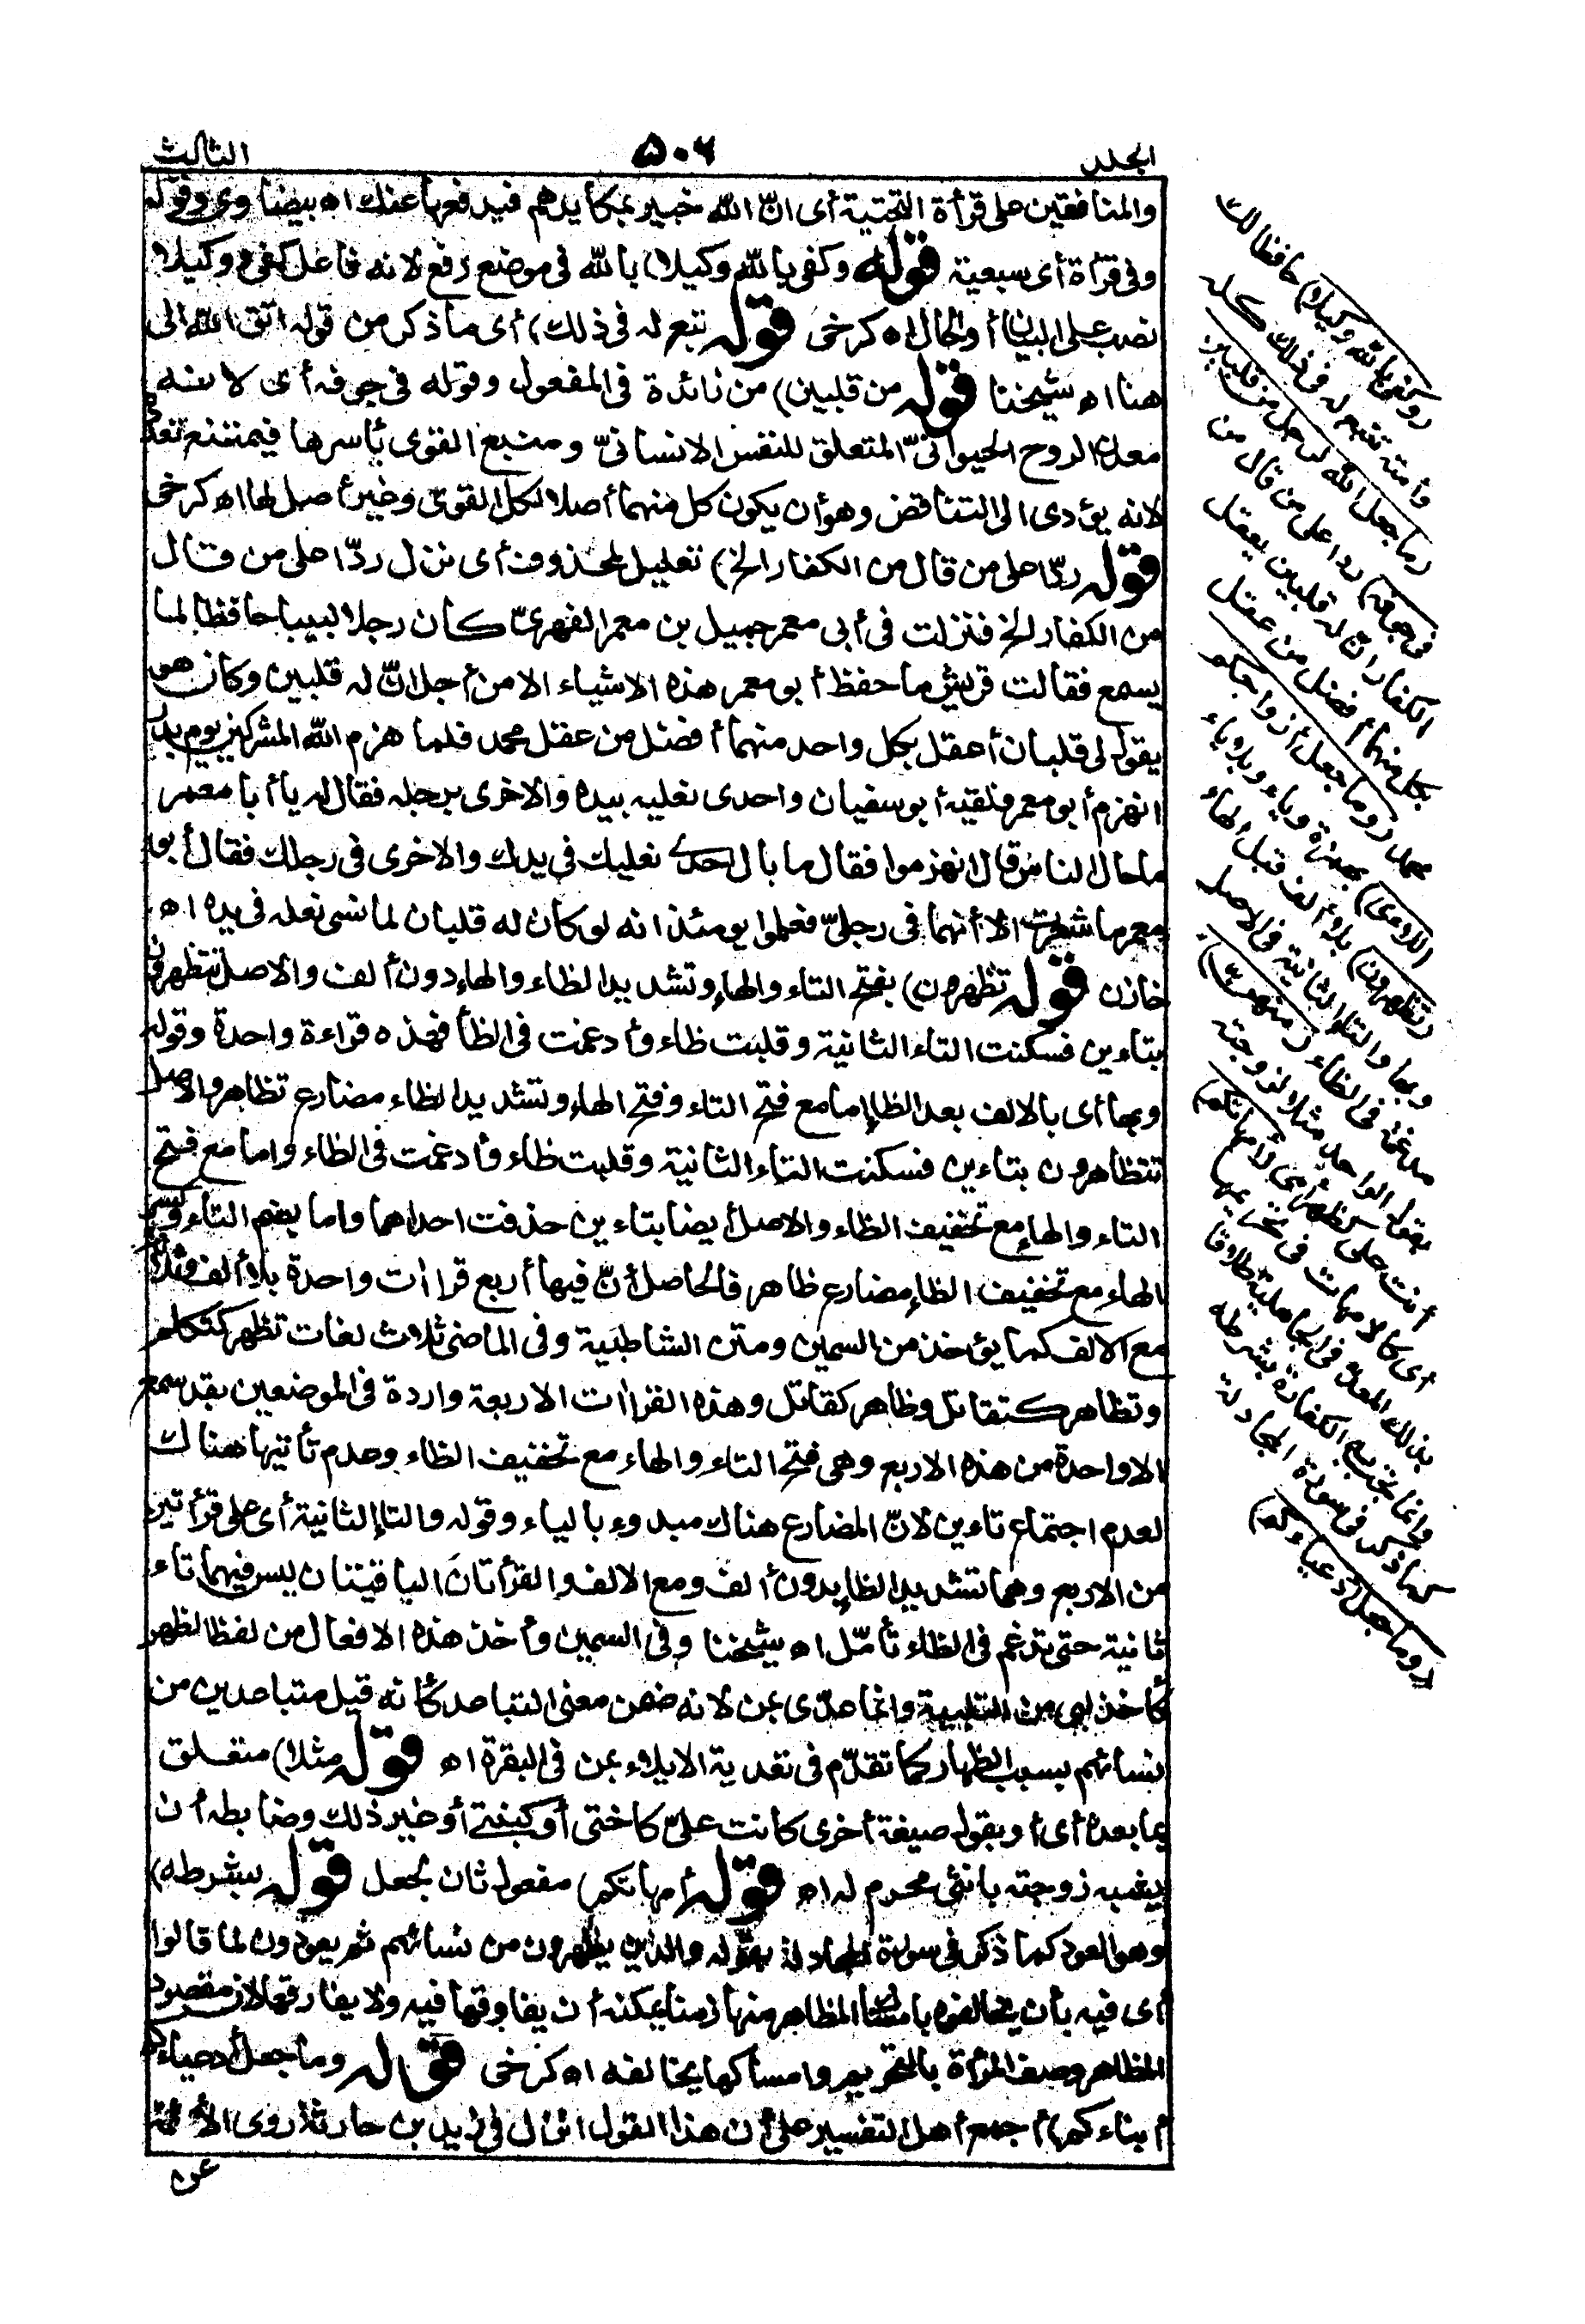 المجلد
٥٠٦
الثالث
والمنافقين على قرأة التحتية أى انّ الله خبير بمكايدهم فيدفعها عنك اه بيضاوى وقوله
وفى قرأة أى سبعية قوله وكفى بالله وكيلا) بالله فى موضع رفع لانه فاعل كفى ووكيلا
نصب على البيان أو الحال اه كرخى قوله تبع له فى ذلك) أى ما ذكر من قوله اتق الله الى
هنا اه شيخنا قوله من قلبين) من زائدة فى المفعول وقوله فى جوفه أى لانه
معدن الروح الحيوانىّ المتعلق للنفس الانسانىّ ومنبع القوى بأسرها فيمتنع تعدد
لانه يؤدى الى التناقض وهو أن يكون كل منهما أصلا لكل القوىّ وغير أصل لها اه كرخى
قوله ردّا على من قال من الكفار الخ) تعليل لمحذوف أى نزل ردّا على من قال
من الكفار الخ فنزلت فى أبى معمر جميل بن معمر الفهرىّ كان رجلا لبيبا حافظا لما
يسمع فقالت قريش ما حفظ أبو معمر هذه الاشياء الا من أجل انّ له قلبين وكان هو
يقول لى قلبان أعقل بكل واحد منهما أفضل من عقل محمد فلما هزم الله المشركين يوم بدر
انهزم أبو معمر فلقيه أبو سفيان واحدى نعليه بيده والاخرى برجله فقال له يا أبا معمر
ما حال الناس قال انهزموا فقال ما بال احدى نعليك فى يدك والاخرى فى رجلك فقال أبو
معمر ما شعرت الا أنهما فى رجلىّ فعلموا يومئذ انه لو كان له قلبان لما نسى نعله فى يده اه
خازن قوله تظهرون) بفتح التاء والهاء وتشديد الظاء والهاء دون ألف والاصل تتظهرون
بتاءين فسكنت التاء الثانية وقلبت ظاء وأدغمت فى الظأ فهذه قراءة واحدة وقوله
وبها أى بالالف بعد الظاء اما مع فتح التاء وفتح الهاء وتشديد الظاء مضارع تظاهر والاصل
تتظاهرون بتاءين فسكنت التاء الثانية وقلبت ظاء وأدغمت فى الظاء واما مع فتح
التاء والهاء مع تخفيف الظاء والاصل أيضا بتاءين حذفت احداهما واما بضم التاء وكسر
الهاء مع تخفيف الظاء مضارع ظاهر فالحاصل أنّ فيها أربع قرا ات واحدة بلا ألف وثلاثة
مع الالف كما يؤخذ من السمين ومتن الشاطبية وفى الماضى ثلاث لغات تظهر كتكلم
وتظاهر كتقاتل وظاهر كقاتل وهذه القرا ات الاربعة واردة فى الموضعين بقد سمع
الا واحدة من هذه الاربع وهى فتح التاء والهاء مع تخفيف الظاء وعدم تأتيها هناك
لعدم اجتماع تاءين لانّ المضارع هناك مبدوء بالياء وقوله والتاء الثانية أى على قرأتين
من الاربع وهما تشديد الظاء بدون ألف ومع الالف والقرأتان الباقيتان ليس فيهما تاء
ثانية حتى تدغم فى الظاء تأمّل اه شيخنا وفى السمين وأخذ هذه الافعال من لفظ الظهر
كأخذ لبى من التلبية وانما عدّى بمن لانه ضمن معنى التباعد كأنه قيل متباعدين من
نسائهم بسبب الظهار كما تقدّم فى تعدية الايلاء بمن فى البقرة اه قوله مثلا) متعلق
بما بعده أى أو بقوله صيغة أخرى كانت علىّ كاختى أو كبنتى أو غير ذلك وضابطه أن
يشبه زوجته بانثى محرم له اه قوله أمهاتكم) مفعول ثان لجعل قوله بشرطه)
وهو العود كما ذكر فى سورة المجادلة بقوله والذين يظهرون من نسائهم ثم يعودون لما قالوا
أى فيه بأن يخالفوه بامساك المظاهر منها زمنا يمكنه أن يفارقها فيه ولا يفارقها لان مقصود
المظاهر وصف المرأة بالتحريم وامساكها يخالفه اه كرخى قوله وما جعل أدعياءكم
أبناءكم) أجمع أهل التفسير على أن هذا القول انزل فى زيد بن حارثة روى الأئمة
عن
(وكفى بالله وكيلا) حافظا لك
وأمته تبع له فى ذلك كله
(ما جعل الله لرجل من قلبين
فى جوفه) ردا على من قال من
الكفار انّ له قلبين يعقل
بكل منهما أفضل من عقل
محمد (وما جعل أزواجكم
اللاءى) بهمزة وياء وبلا ياء
(تظهرون) بلا ألف قبل الهاء
وبها والتاء الثانية فى الاصل
مدغمة فى الظاء (منهنّ)
بقول الواحد مثلا لزوجته
أنت على كظهر أمى (أمهاتكم)
أى كالامهات فى تحريمها
بذلك المعد فى الجاهلية طلاقا
وانما تجب به الكفارة بشرطه
كما ذكر فى سورة المجادلة
(وما جعل أدعياءكم)